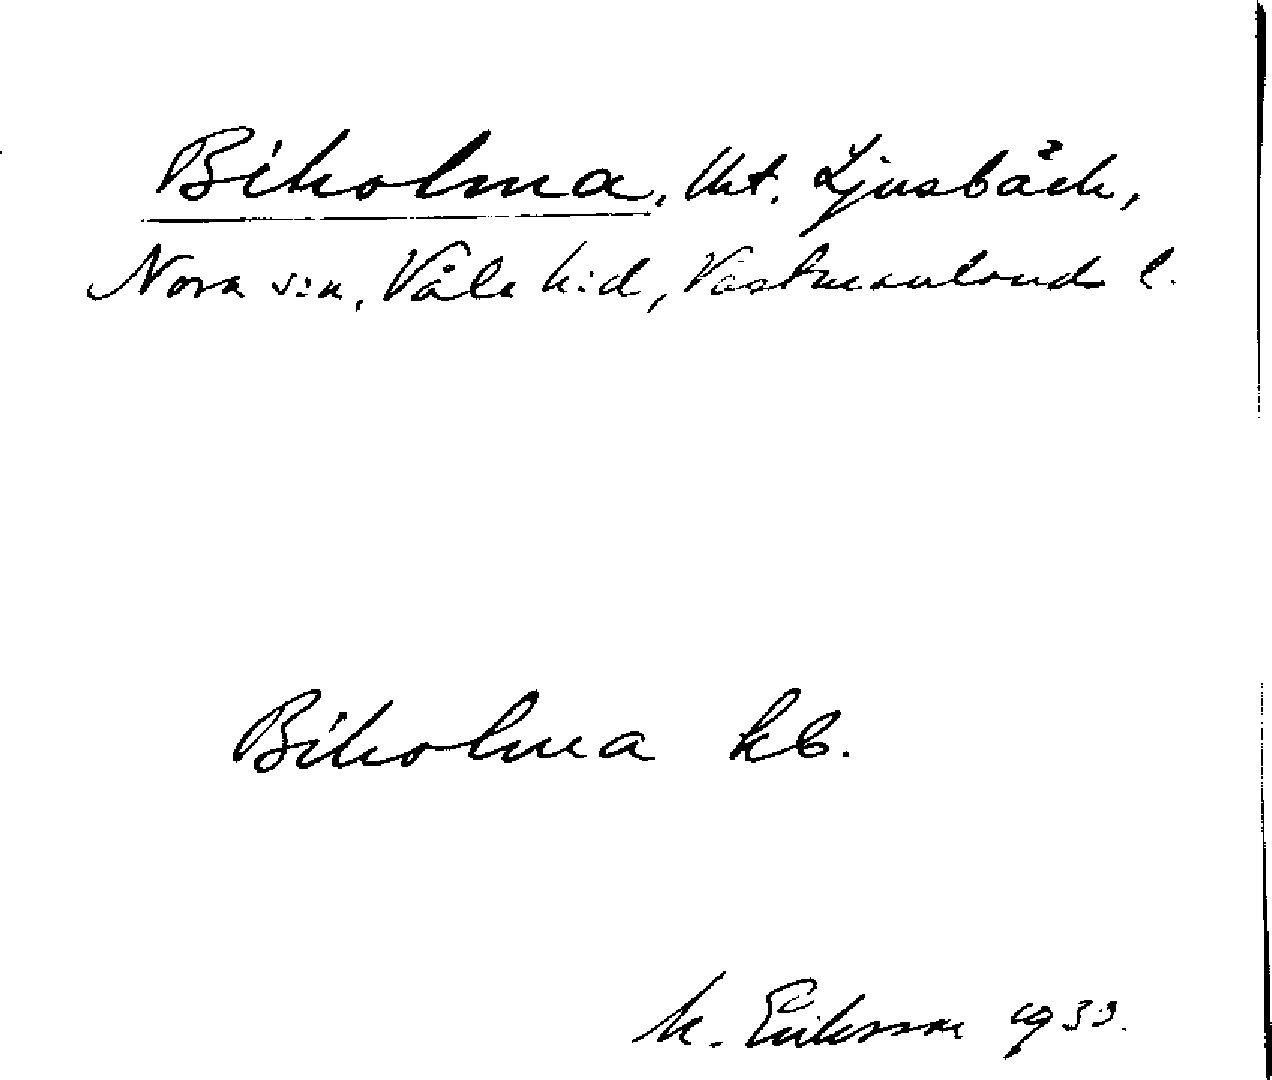 Bikolma, Unt. Ljusbäck,
Nora s:n, Våla h:d, Västmanland l.
Bikolma kb.
M. Eriksson 1933.